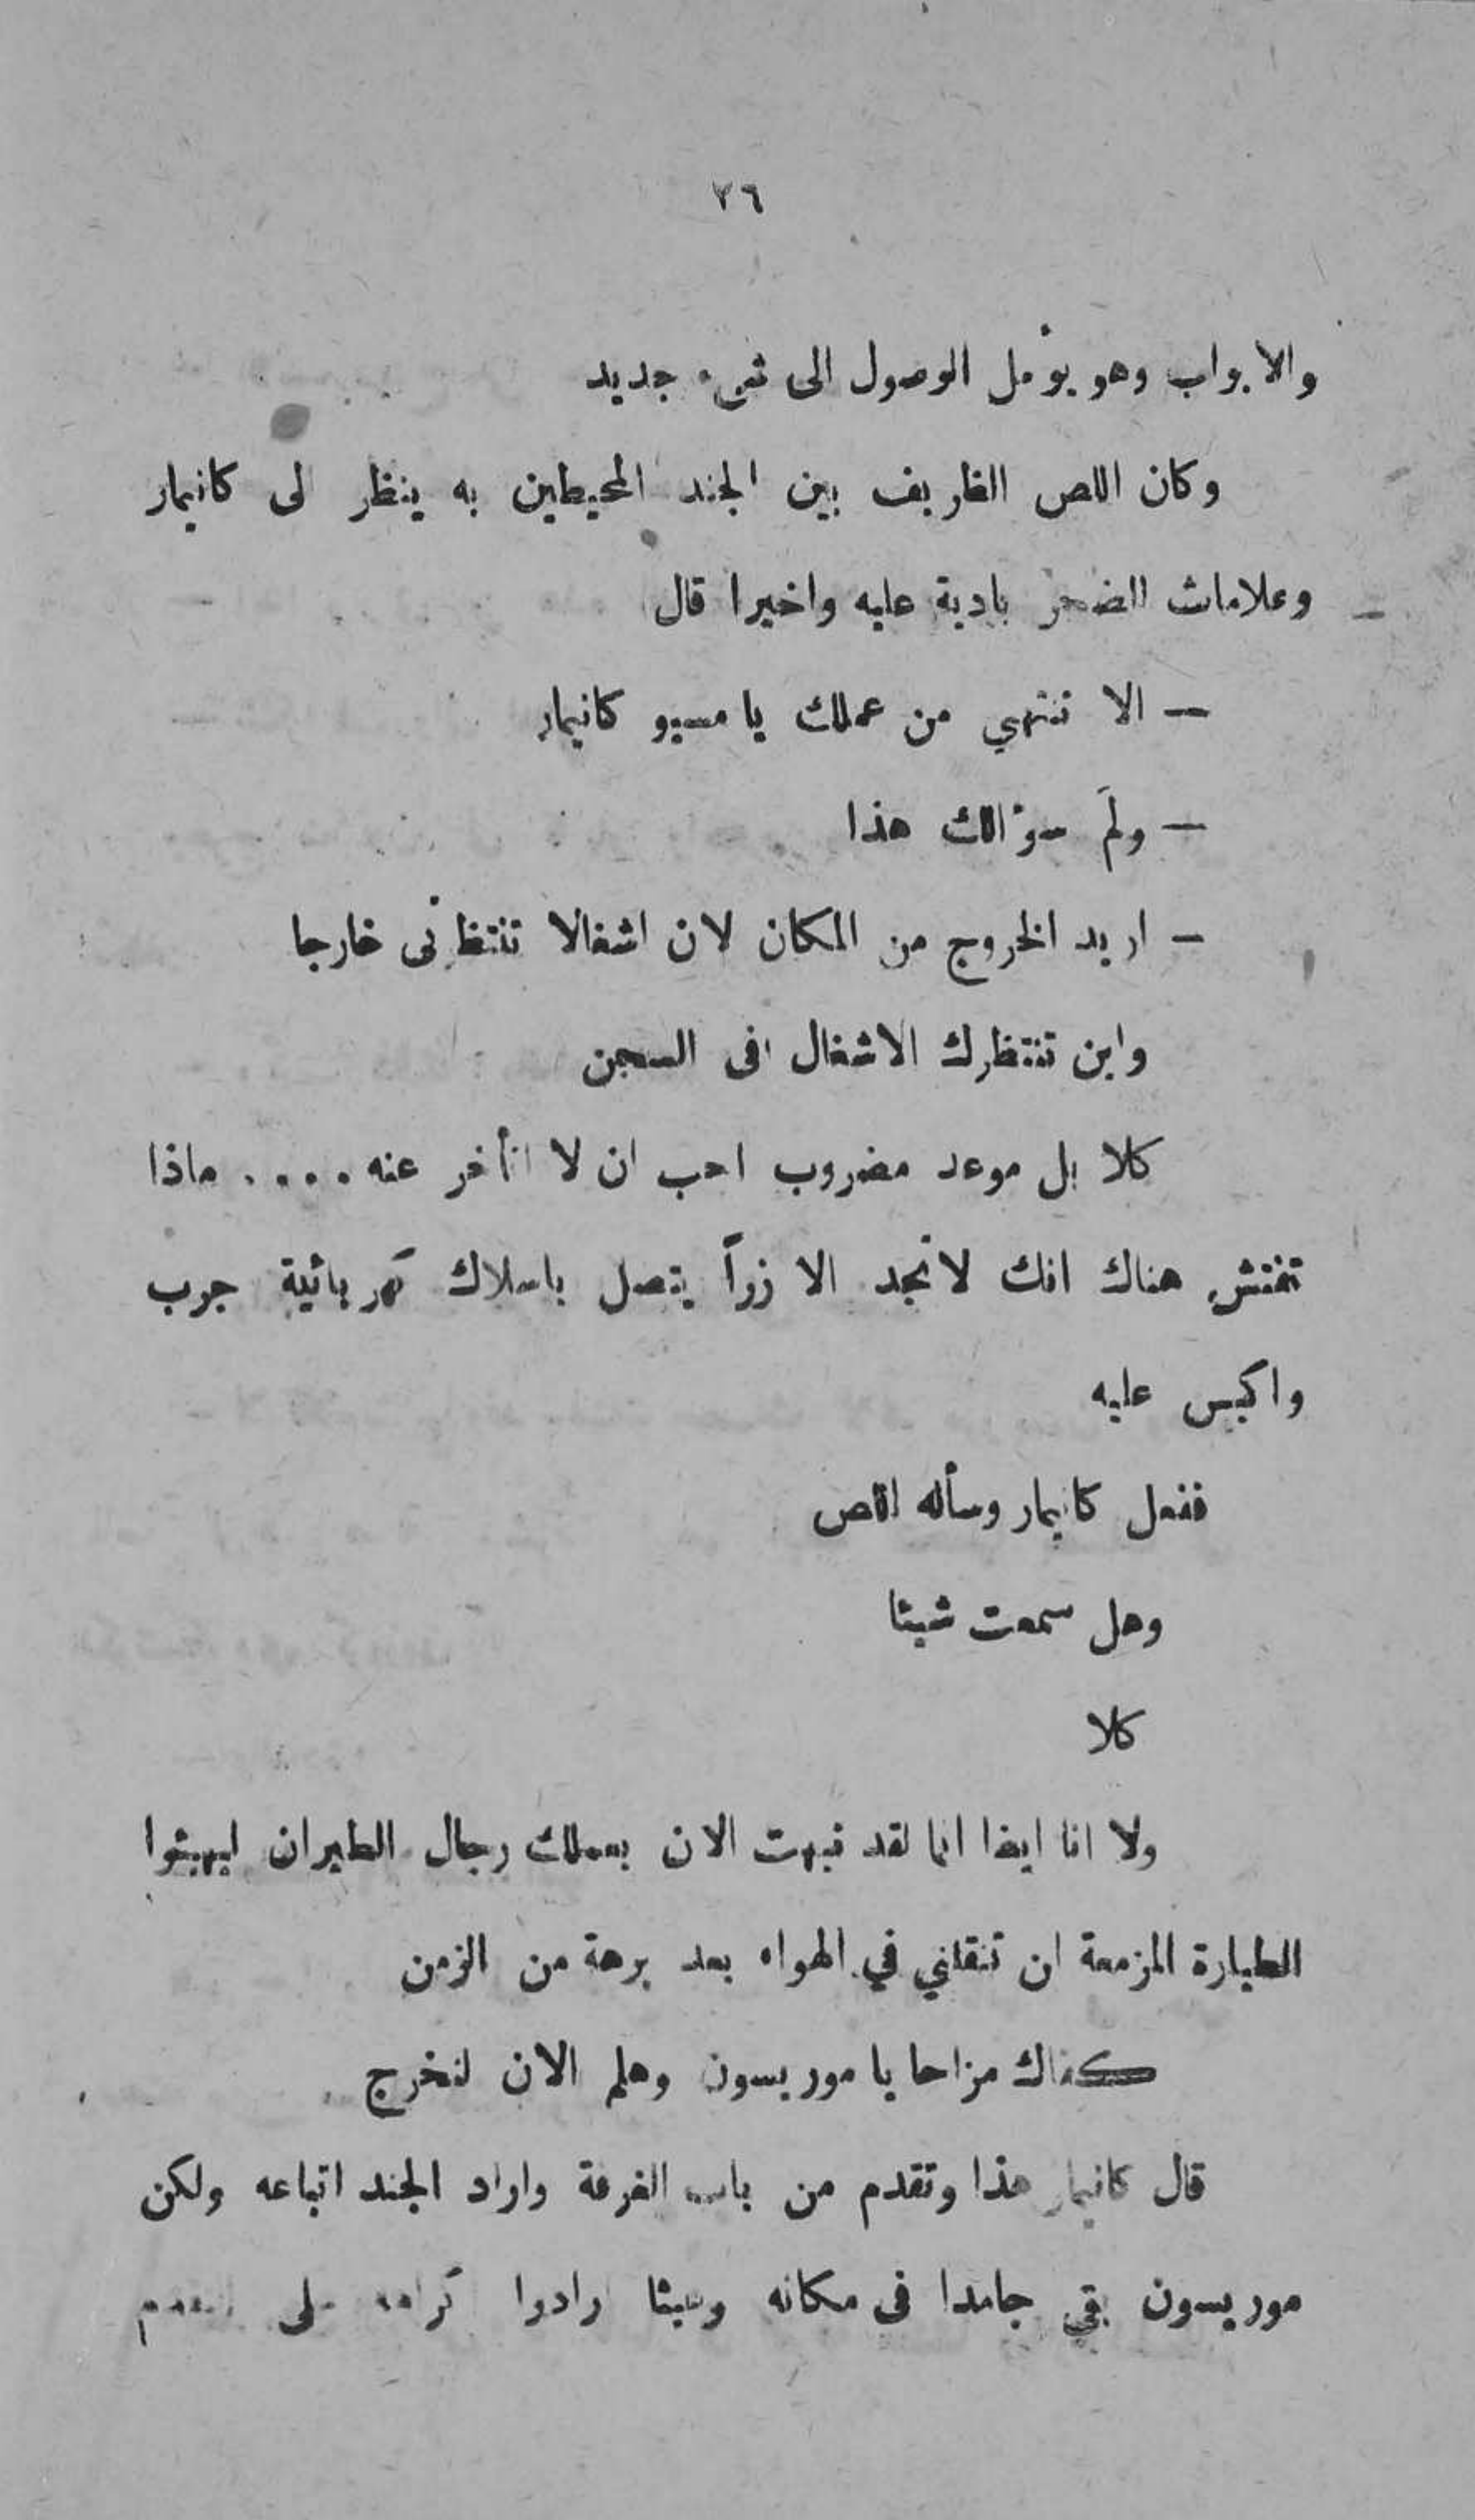 ٢٦
والابواب وهو يؤمل الوصول الى شىء جديد
وكان اللص الظريف بين الجند المحيطين به ينظر لى كانيمار
وعلامات الضجر بادية عليه واخيرا قال
— الا تنتهي من عملك يا مسيو كانيمار
— ولمَ سؤالك هذا
— اريد الخروج من المكان لان اشغالا تنتظرنى خارجا
واين تنتظرك الاشغال افى السجن
كلا بل موعد مضروب احب ان لا اتأخر عنه .... ماذا
تفتش هناك انك لاتجد الا زراً يتصل باسلاك كهربائية جرب
واكبس عليه
ففعل كانيمار وسأله اللص
وهل سمعت شيئا
كلا
ولا انا ايضا انما لقد نبهت الان بعملك رجال الطيران ليهيئوا
الطيارة المزمعة ان تنقلني في الهواء بعد برهة من الزمن
كفاك مزاحا يا موريسون وهلم الان لنخرج
قال كانيمار هذا وتقدم من باب الغرفة واراد الجند اتباعه ولكن
موريسون بقي جامدا فى مكانه وعبثا ارادوا على